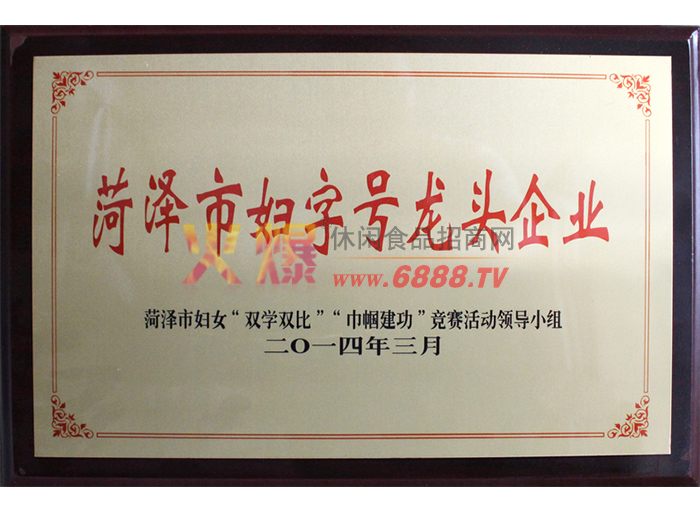 菏泽市妇字号龙头企业
火爆 休闲食品招商网
www.6888.TV
菏泽市妇女“双学双比”“巾帼建功”竞赛活动领导小组
二〇一四年三月